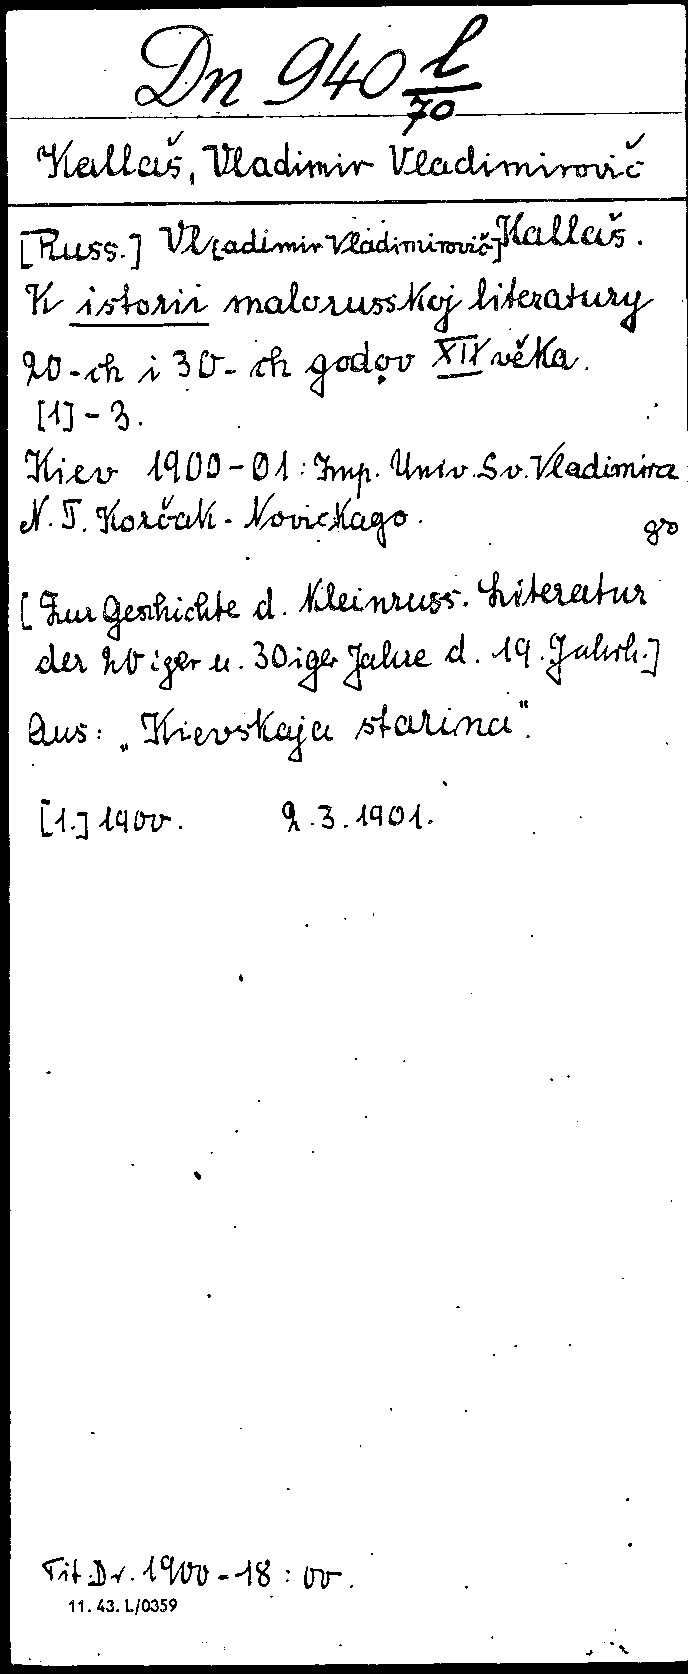 Dn 940 l/70
Kallaš, Vladimir Vladimirovič
[Russ.] Vl[adimir Vladimirovič] Kallaš.
K istorii malorusskoj literatury
20-ch i 30-ch godov XIX věka.
[1]-3.
Kiev 1900-01: Imp. Univ. Sv. Vladimira
N. T. Korčak-Novickago. 8o
[Zur Geschichte d. Kleinruss. Literatur
der 20iger u. 30iger Jahre d. 19. Jahrh.]
Aus: „Kievskaja starina".
[1.] 1900. 2.3.1901.
Tit. Dr. 1900-18:00.
11. 43. L/0359